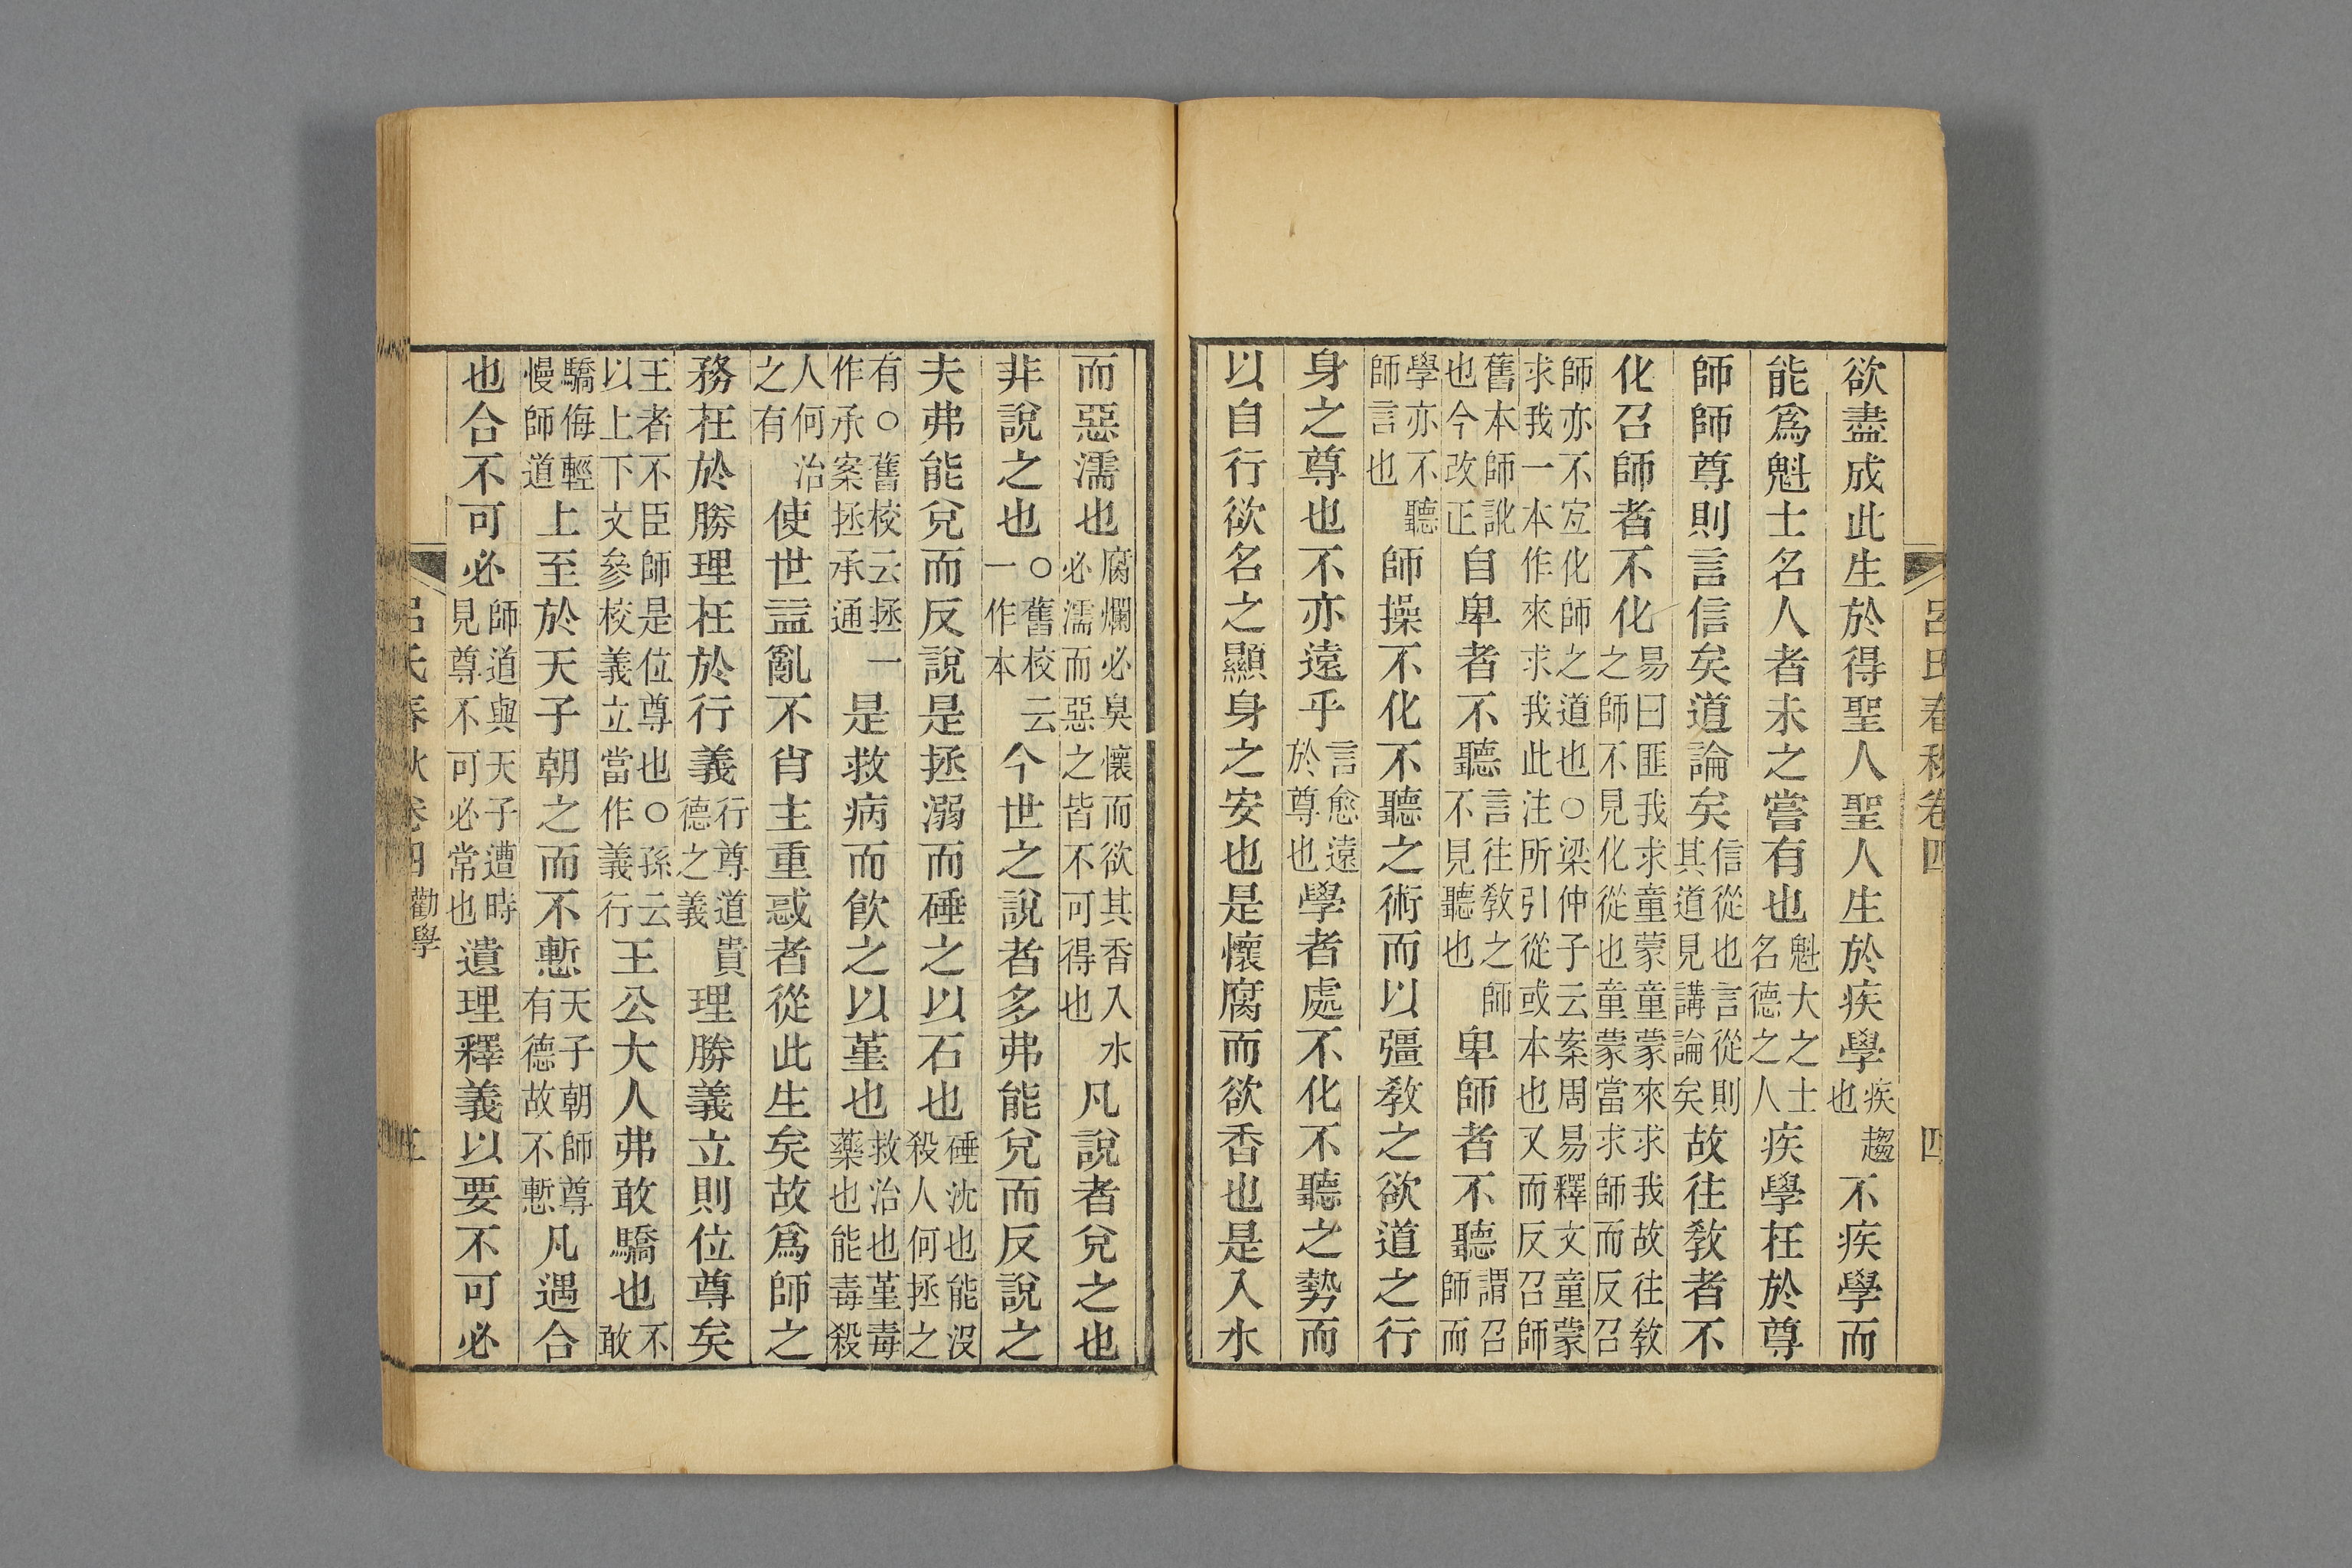 呂氏春秋卷四 四
欲盡成此生於得聖人聖人生於疾學疾趨也不疾學而
能爲魁士名人者未之嘗有也魁大之士名德之人疾學在於尊
師師尊則言信矣道論矣信從也言從則其道見講論矣故往敎者不
化召師者不化易曰匪我求童蒙童蒙來求我故往敎之師不見化從也童蒙當求師而反召
師亦不宐化師之道也○梁仲子云案周易釋文童蒙求我一本作來求我此注所引從或本也又而反召師
舊本師訛也今改正自卑者不聽言往敎之師不見聽也卑師者不聽謂召師而
學亦不聽師言也師操不化不聽之術而以彊敎之欲道之行
身之尊也不亦遠乎言愈遠於尊也學者處不化不聽之勢而
以自行欲名之顯身之安也是懷腐而欲香也是入水
而惡濡也腐爛必臭懷而欲其香入水必濡而惡之皆不可得也凡說者兌之也
非說之也○舊校云一作本今世之說者多弗能兌而反說之
夫弗能兌而反說是拯溺而硾之以石也硾沈也能沒殺人何拯之
有○舊校云拯一作承案拯承通是救病而飮之以堇也救治也堇毒藥也能毒殺
人何治之有使世益亂不肖主重惑者從此生矣故爲師之
務在於勝理在於行義行尊道貴德之義理勝義立則位尊矣
王者不臣師是位尊也○孫云以上下文參校義立當作義行王公大人弗敢驕也不敢
驕侮輕慢師道上至於天子朝之而不慙天子朝師尊有德故不慙凡遇合
也合不可必師道與天子遭時見尊不可必常也遺理釋義以要不可必
呂氏春秋卷四 勸學 五